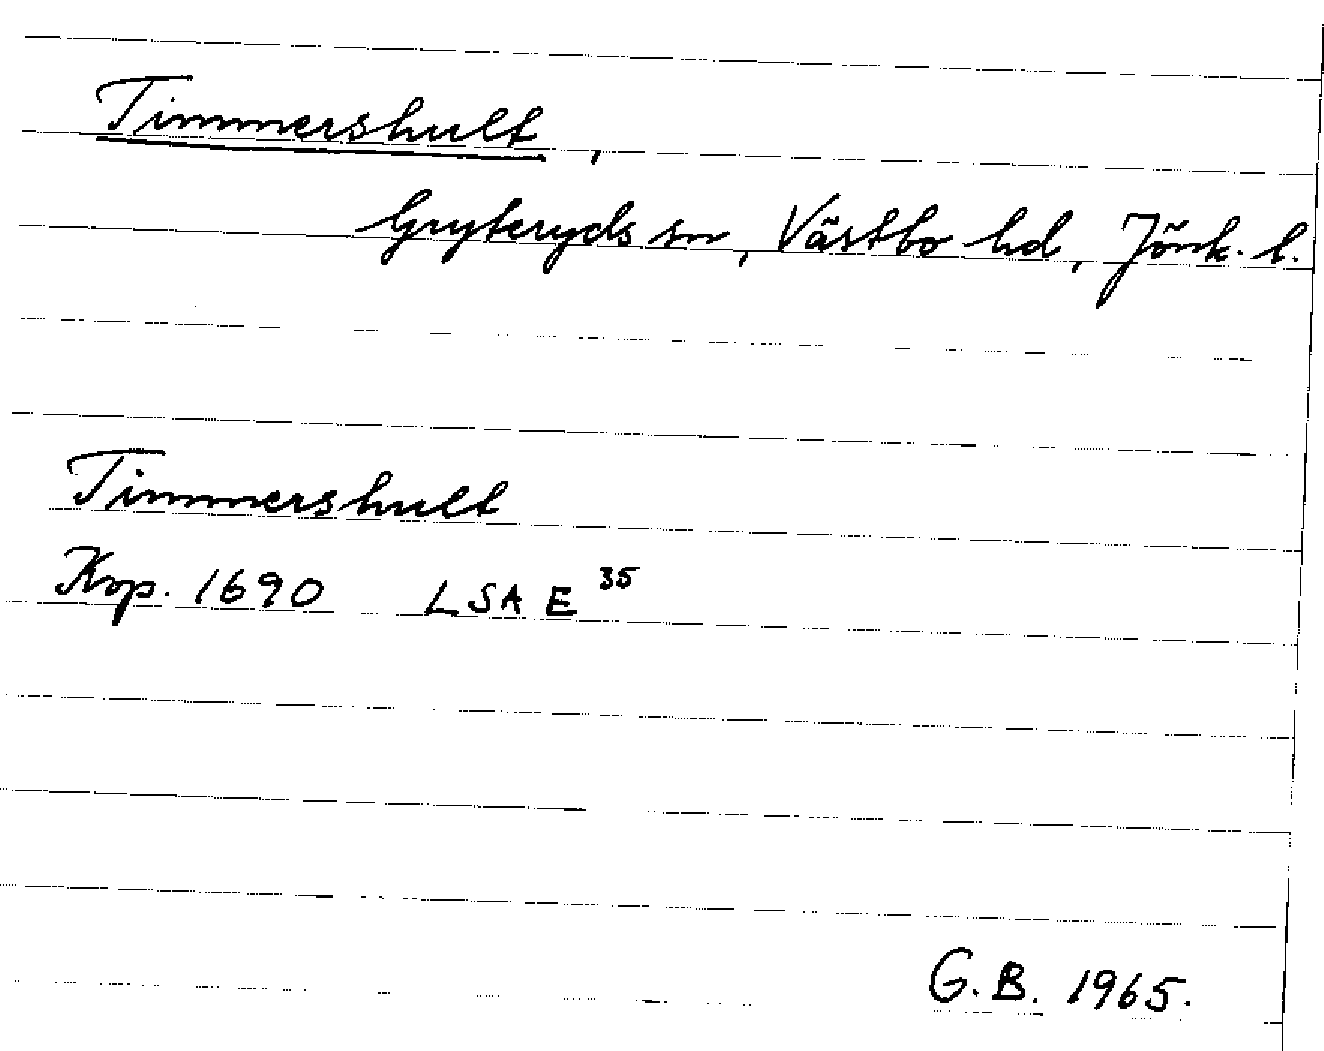 Timmershult,
Gryteryds sn, Västbo hd, Jönk. l.
Timmershult
Kop. 1690 LSA E 35
G.B. 1965.